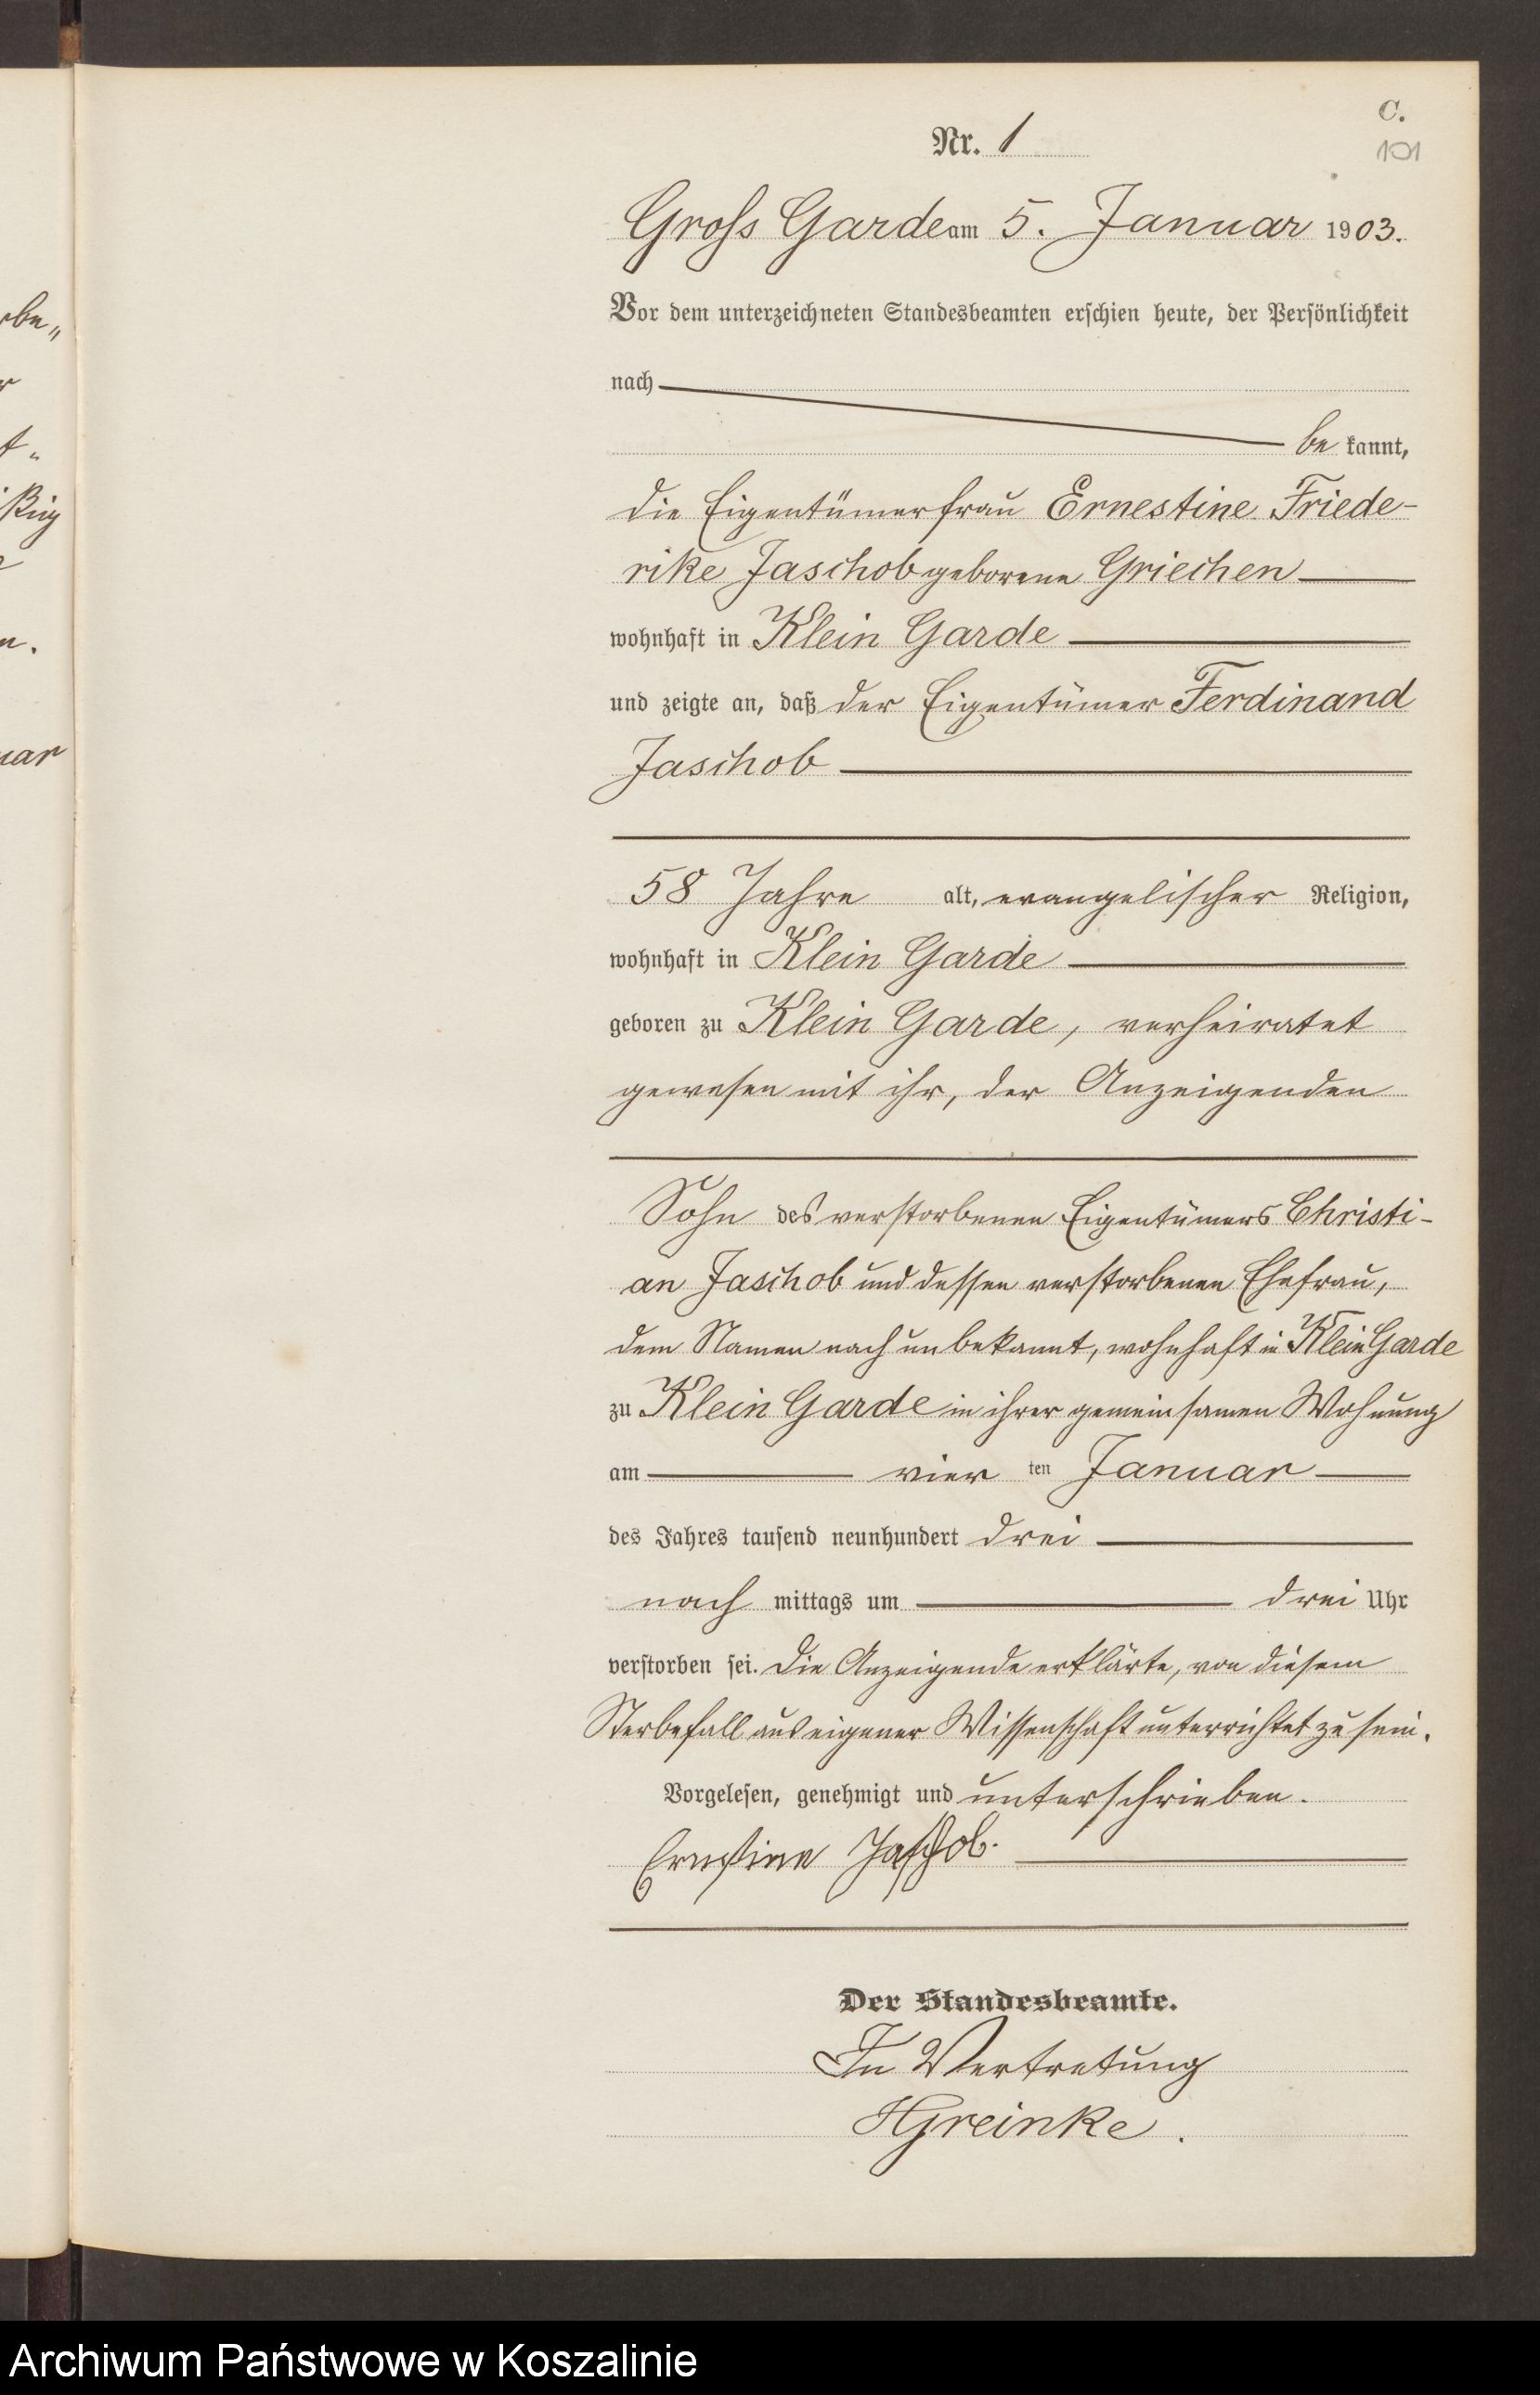 C.
Nr. 1
101
Gross Garde am 5. Januar 1903.
Vor dem unterzeichneten Standesbeamten erschien heute, der Persönlichkeit
nach
be kannt,
die Eigentümerfrau Ernestine Friede-
rike Jaschob geborene Griechen
wohnhaft in Klein Garde
und zeigte an, daß der Eigentümer Ferdinand
Jaschob
58 Jahre alt, evangelischer Religion,
wohnhaft in Klein Garde
geboren zu Klein Garde, verheiratet
gewesen mit ihr, der Anzeigenden
Sohn des verstorbenen Eigentümers Christi-
an Jaschob und dessen verstorbenen Ehefrau,
dem Namen nach unbekannt, wohnhaft in Klein Garde
zu Klein Garde in ihrer gemeinsamen Wohnung
am vier ten Januar
des Jahres tausend neunhundert drei
nach mittags um drei Uhr
verstorben sei. Die Anzeigende erklärte, von diesem
Sterbefall aus eigener Wissenschaft unterrichtet zu sein.
Vorgelesen, genehmigt und unterschrieben.
Ernstine Jaschob.
Der Standesbeamte.
In Vertretung
HGreinke.
Archiwum Państwowe w Koszalinie